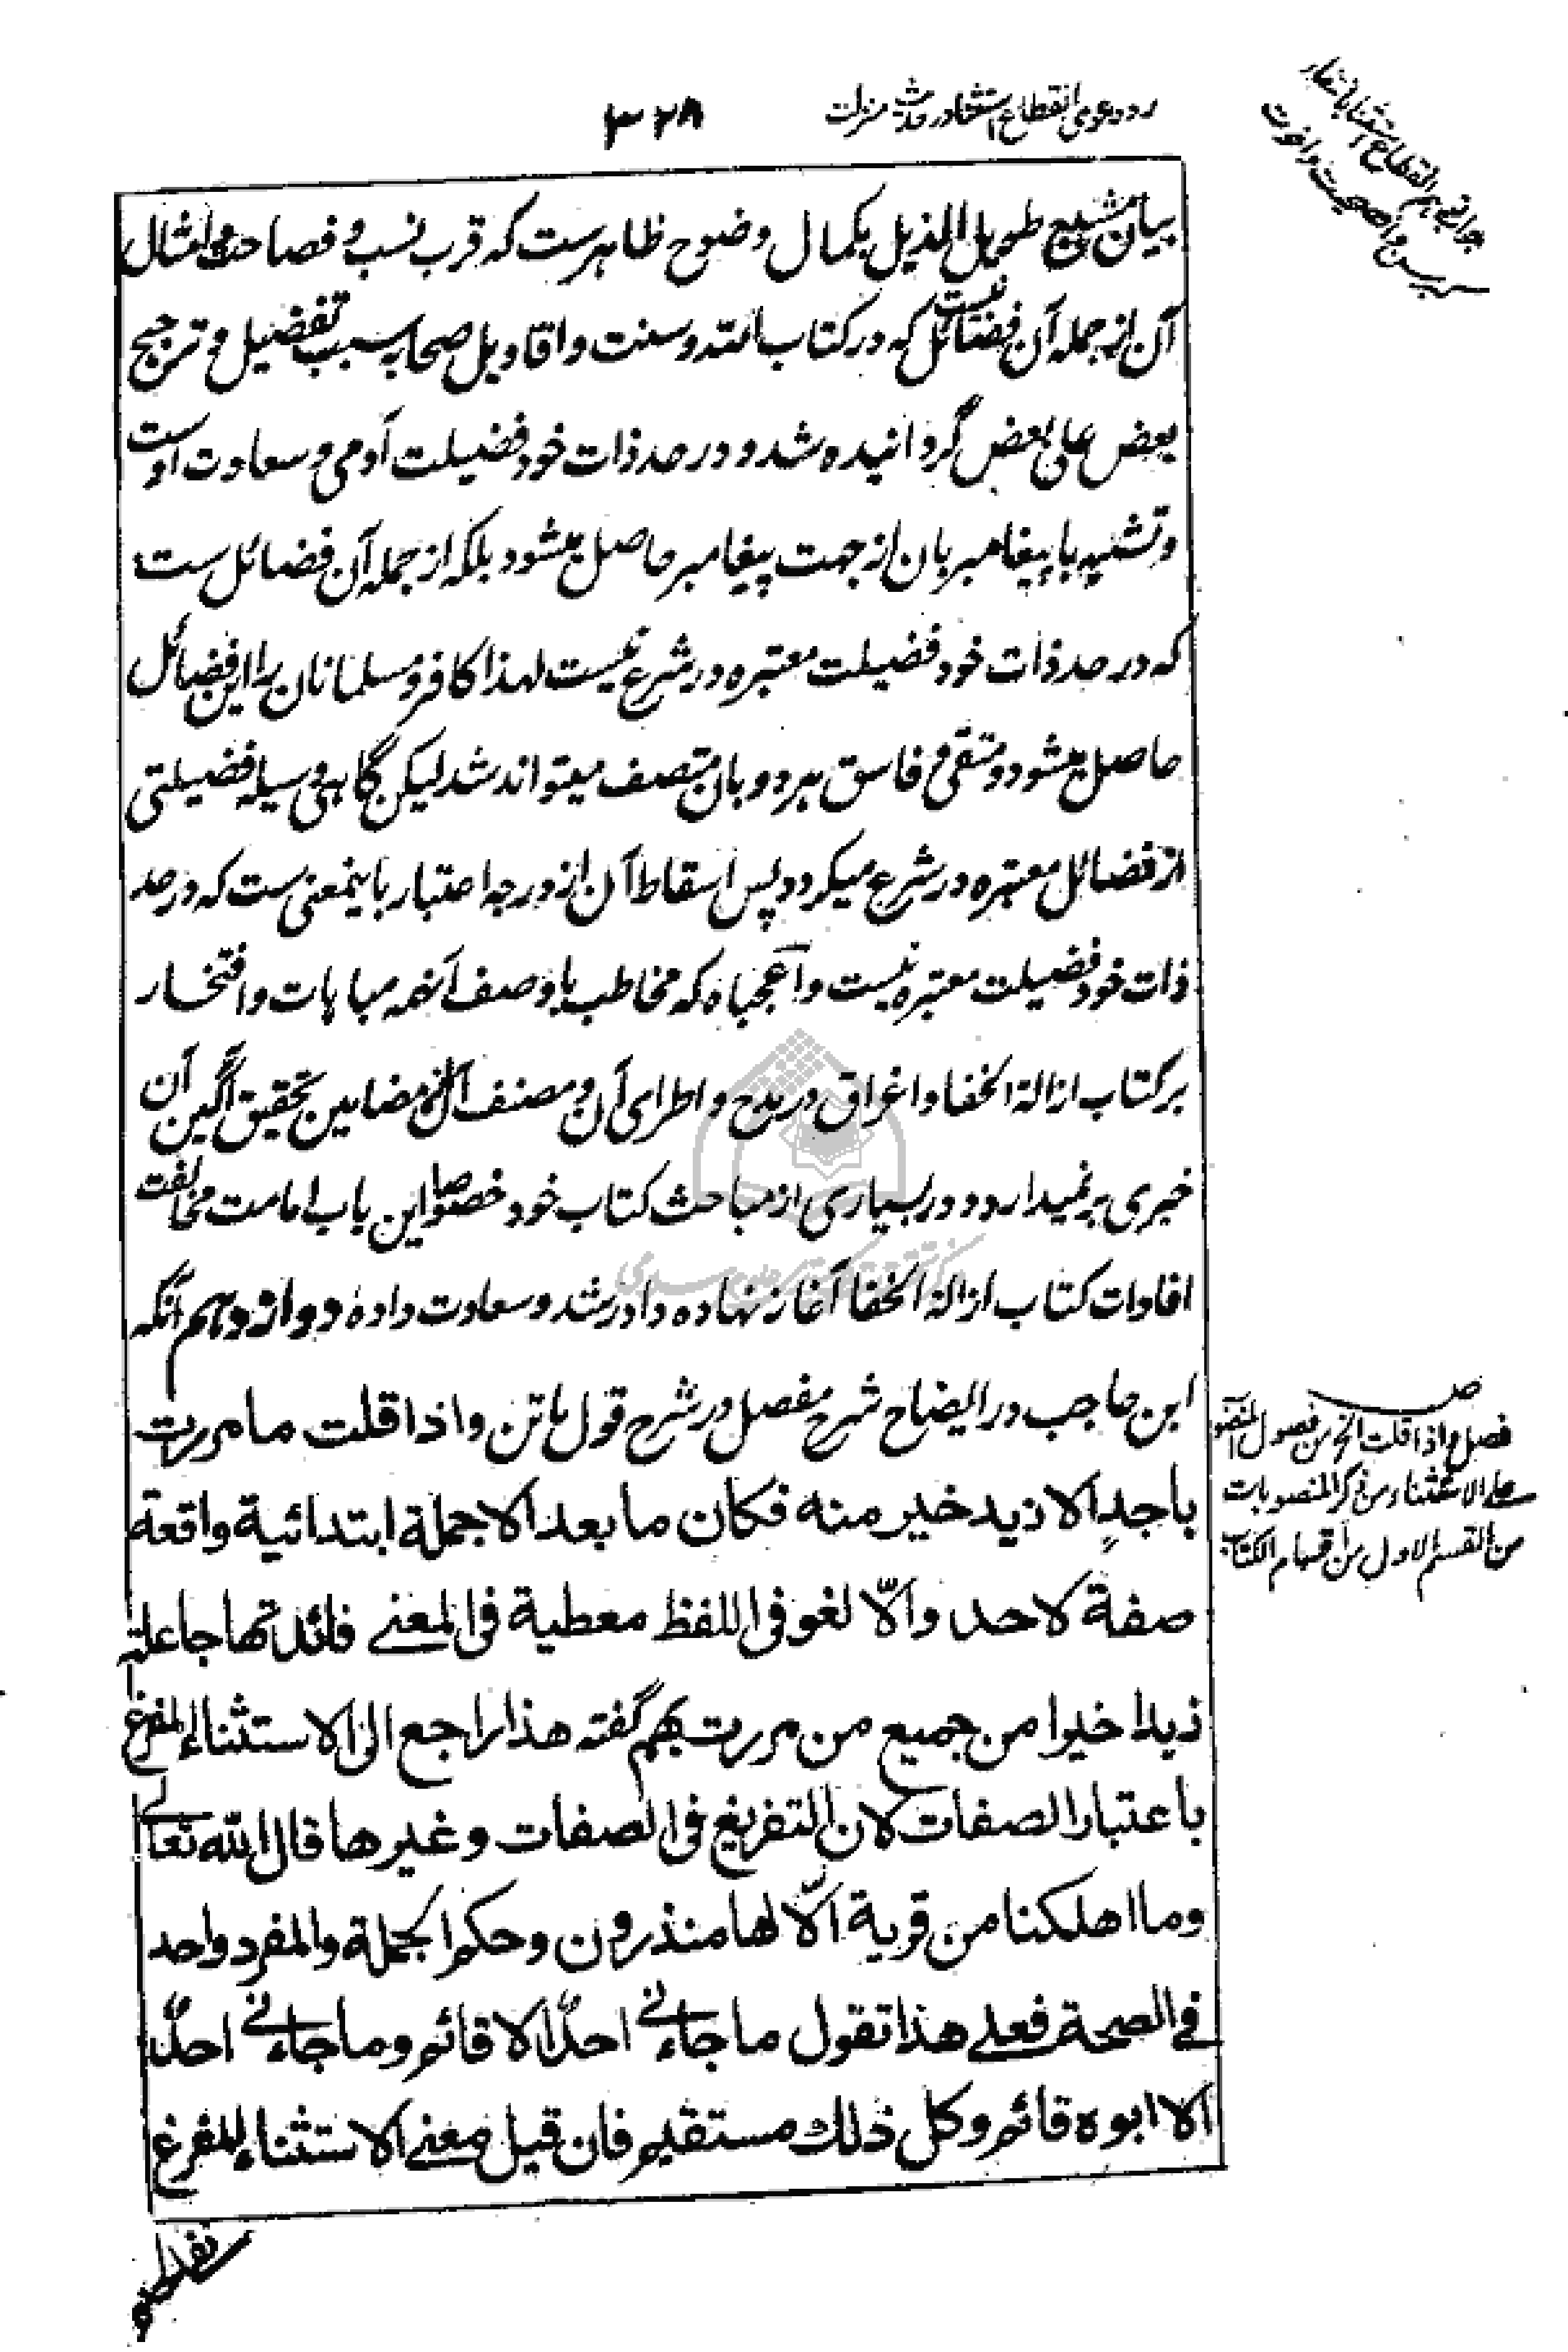 رد دعوی انقطاع استثنا در حدیث منزلت
۳۲۸
جواب توهم انقطاع استثنا باعتبار
کبر سن و افصحیت و اخوت
بیان مشبع طویل الذیل بکمال وضوح ظاهرست که قرب نسب و فصاحت و امثال
آن از جمله آن فضائل نیست که در کتاب الله و سنت و اقاویل صحابه سبب تفضیل و ترجیح
بعض علی بعض گردانیده شد و در حد ذات خود فضیلت آدمی و سعادت اوست
و تشبیه با پیغامبر بان از جهت پیغامبر حاصل میشود بلکه از جمله آن فضائل ست
که در حد ذات خود فضیلت معتبره در شرع نیست لهذا کافر و مسلمانان را این فضائل
حاصل میشود و متقی و فاسق هر دو بان متصف میتواند شد لیکن گاهی وسیله فضیلتی
از فضائل معتبره در شرع میگردد پس اسقاط آن از درجه اعتبار باینمعنی ست که در حد
ذات خود فضیلت معتبره نیست واعجباه که مخاطب با وصف آنهمه مباهات و افتخار
بر کتاب ازالة الخفا و اغراق در مدح و اطرای آن و مصنف آن از مضامین تحقیق آگین آن
خبری برنمیدارد و در بسیاری از مباحث کتاب خود خصوصا این باب امامت مخالفت
افادات کتاب ازالة الخفا آغاز نهاده داد رشد و سعادت داده دوازدهم آنکه
ابن حاجب در ایضاح شرح مفصل در شرح قول ماتن واذا قلت ما مررت
باحدٍ الا زید خیر منه فکان ما بعد الا جملة ابتدائیة واقعة
صفة لاحد والّا لغو فی اللفظ معطیة فی المعنی فائدتها جاعلة
زیدا خیرا من جمیع من مررت بهم گفته هذا راجع الی الاستثناء المفرغ
باعتبار الصفات لان التفریغ فی الصفات وغیرها قال الله تعالی
وما اهلکنا من قریة الّا لها منذرون وحکم الجملة والمفرد واحد
فی الصحة فعلی هذا تقول ما جاءنی احدٌ الا قائم وما جاءنی احدٌ
الا ابوه قائم وکل ذلک مستقیم فان قیل معنی الاستثناء المفرغ
فصل واذا قلت الخ من فصول المنصوب
علی الاستثناء من ذکر المنصوبات
من القسم الاول من اقسام الکتاب